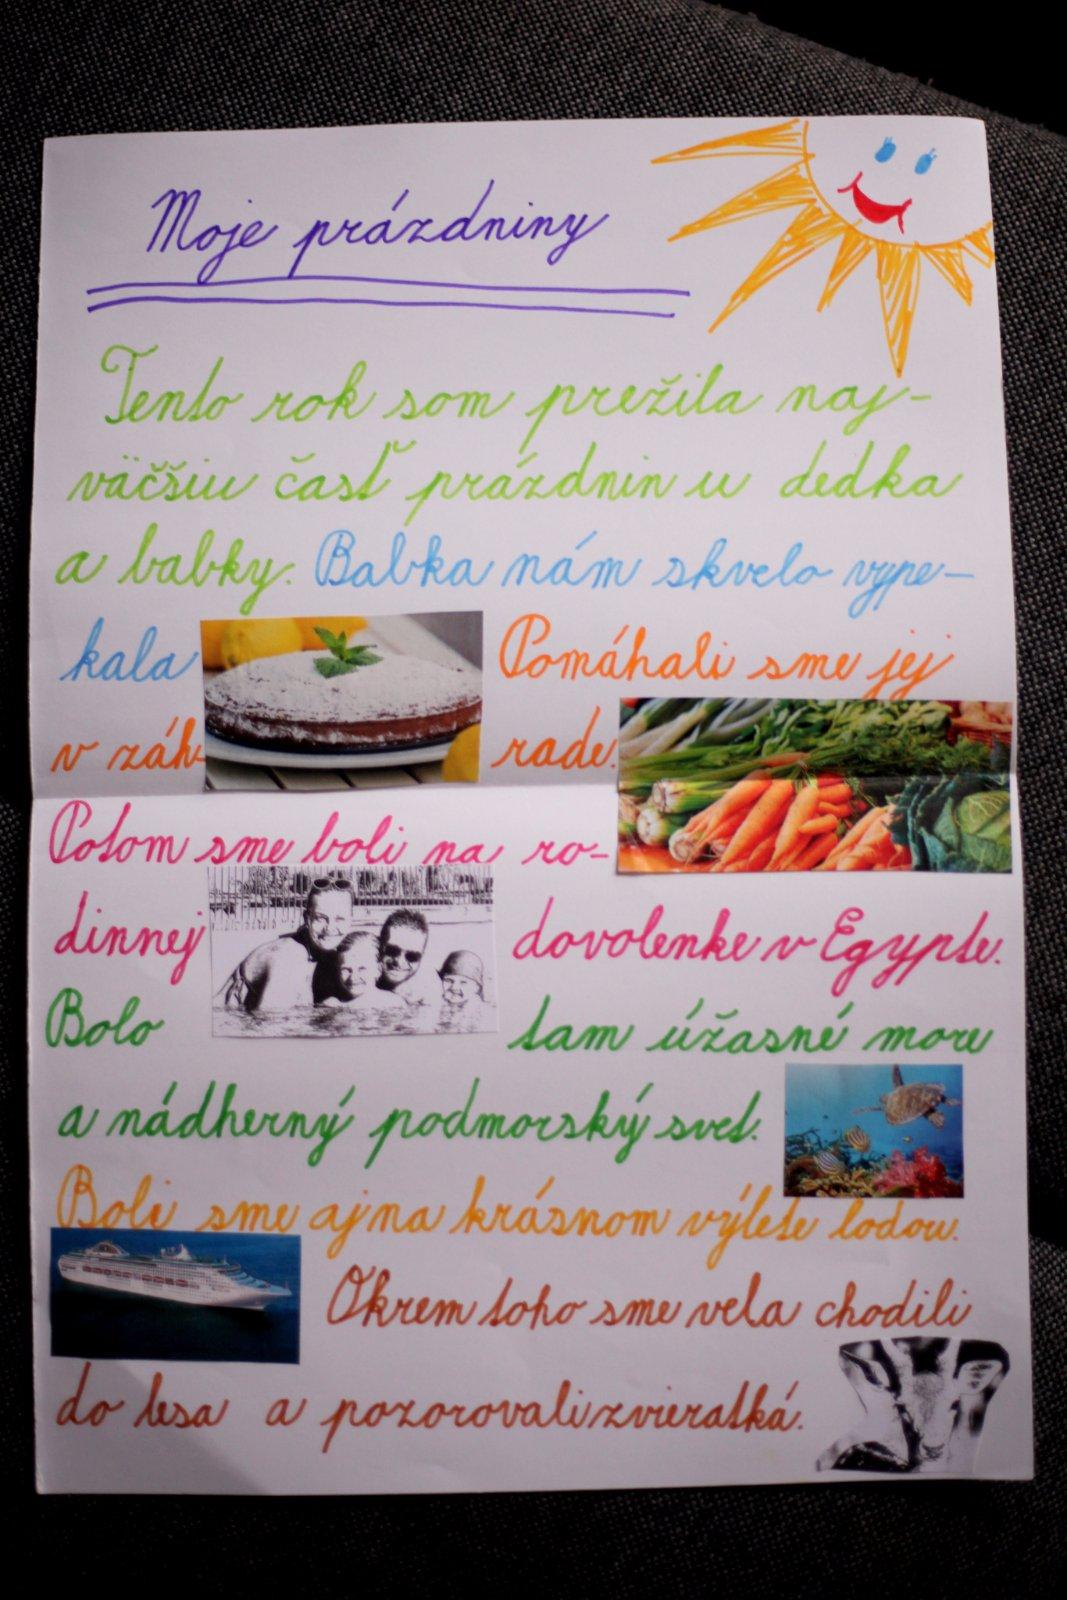 Moje prázdniny
Tento rok som prežila naj-
väčšiu časť prázdnin u dedka
a babky. Babka nám skvelo vype-
kala Pomáhali sme jej
v záh rade.
Potom sme boli na ro-
dinnej dovolenke v Egypte.
Bolo tam úžasné more
a nádherný podmorský svet.
Boli sme aj na krásnom výlete loďou.
Okrem toho sme vela chodili
do lesa a pozorovali zvieratká.